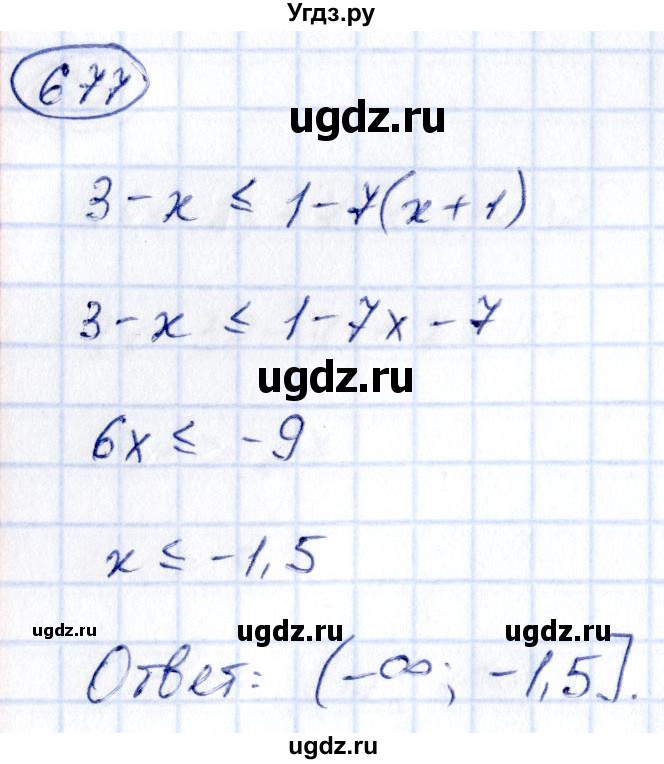 Угдз.ру
677
ugdz.ru
3 - x ≤ 1 - 7(x + 1)
3 - x ≤ 1 - 7x - 7
ugdz.ru
6x ≤ -9
x ≤ -1,5
ugdz.ru ugdz.ru ugdz.ru
Ответ: (-∞; -1,5].
ugdz.ru